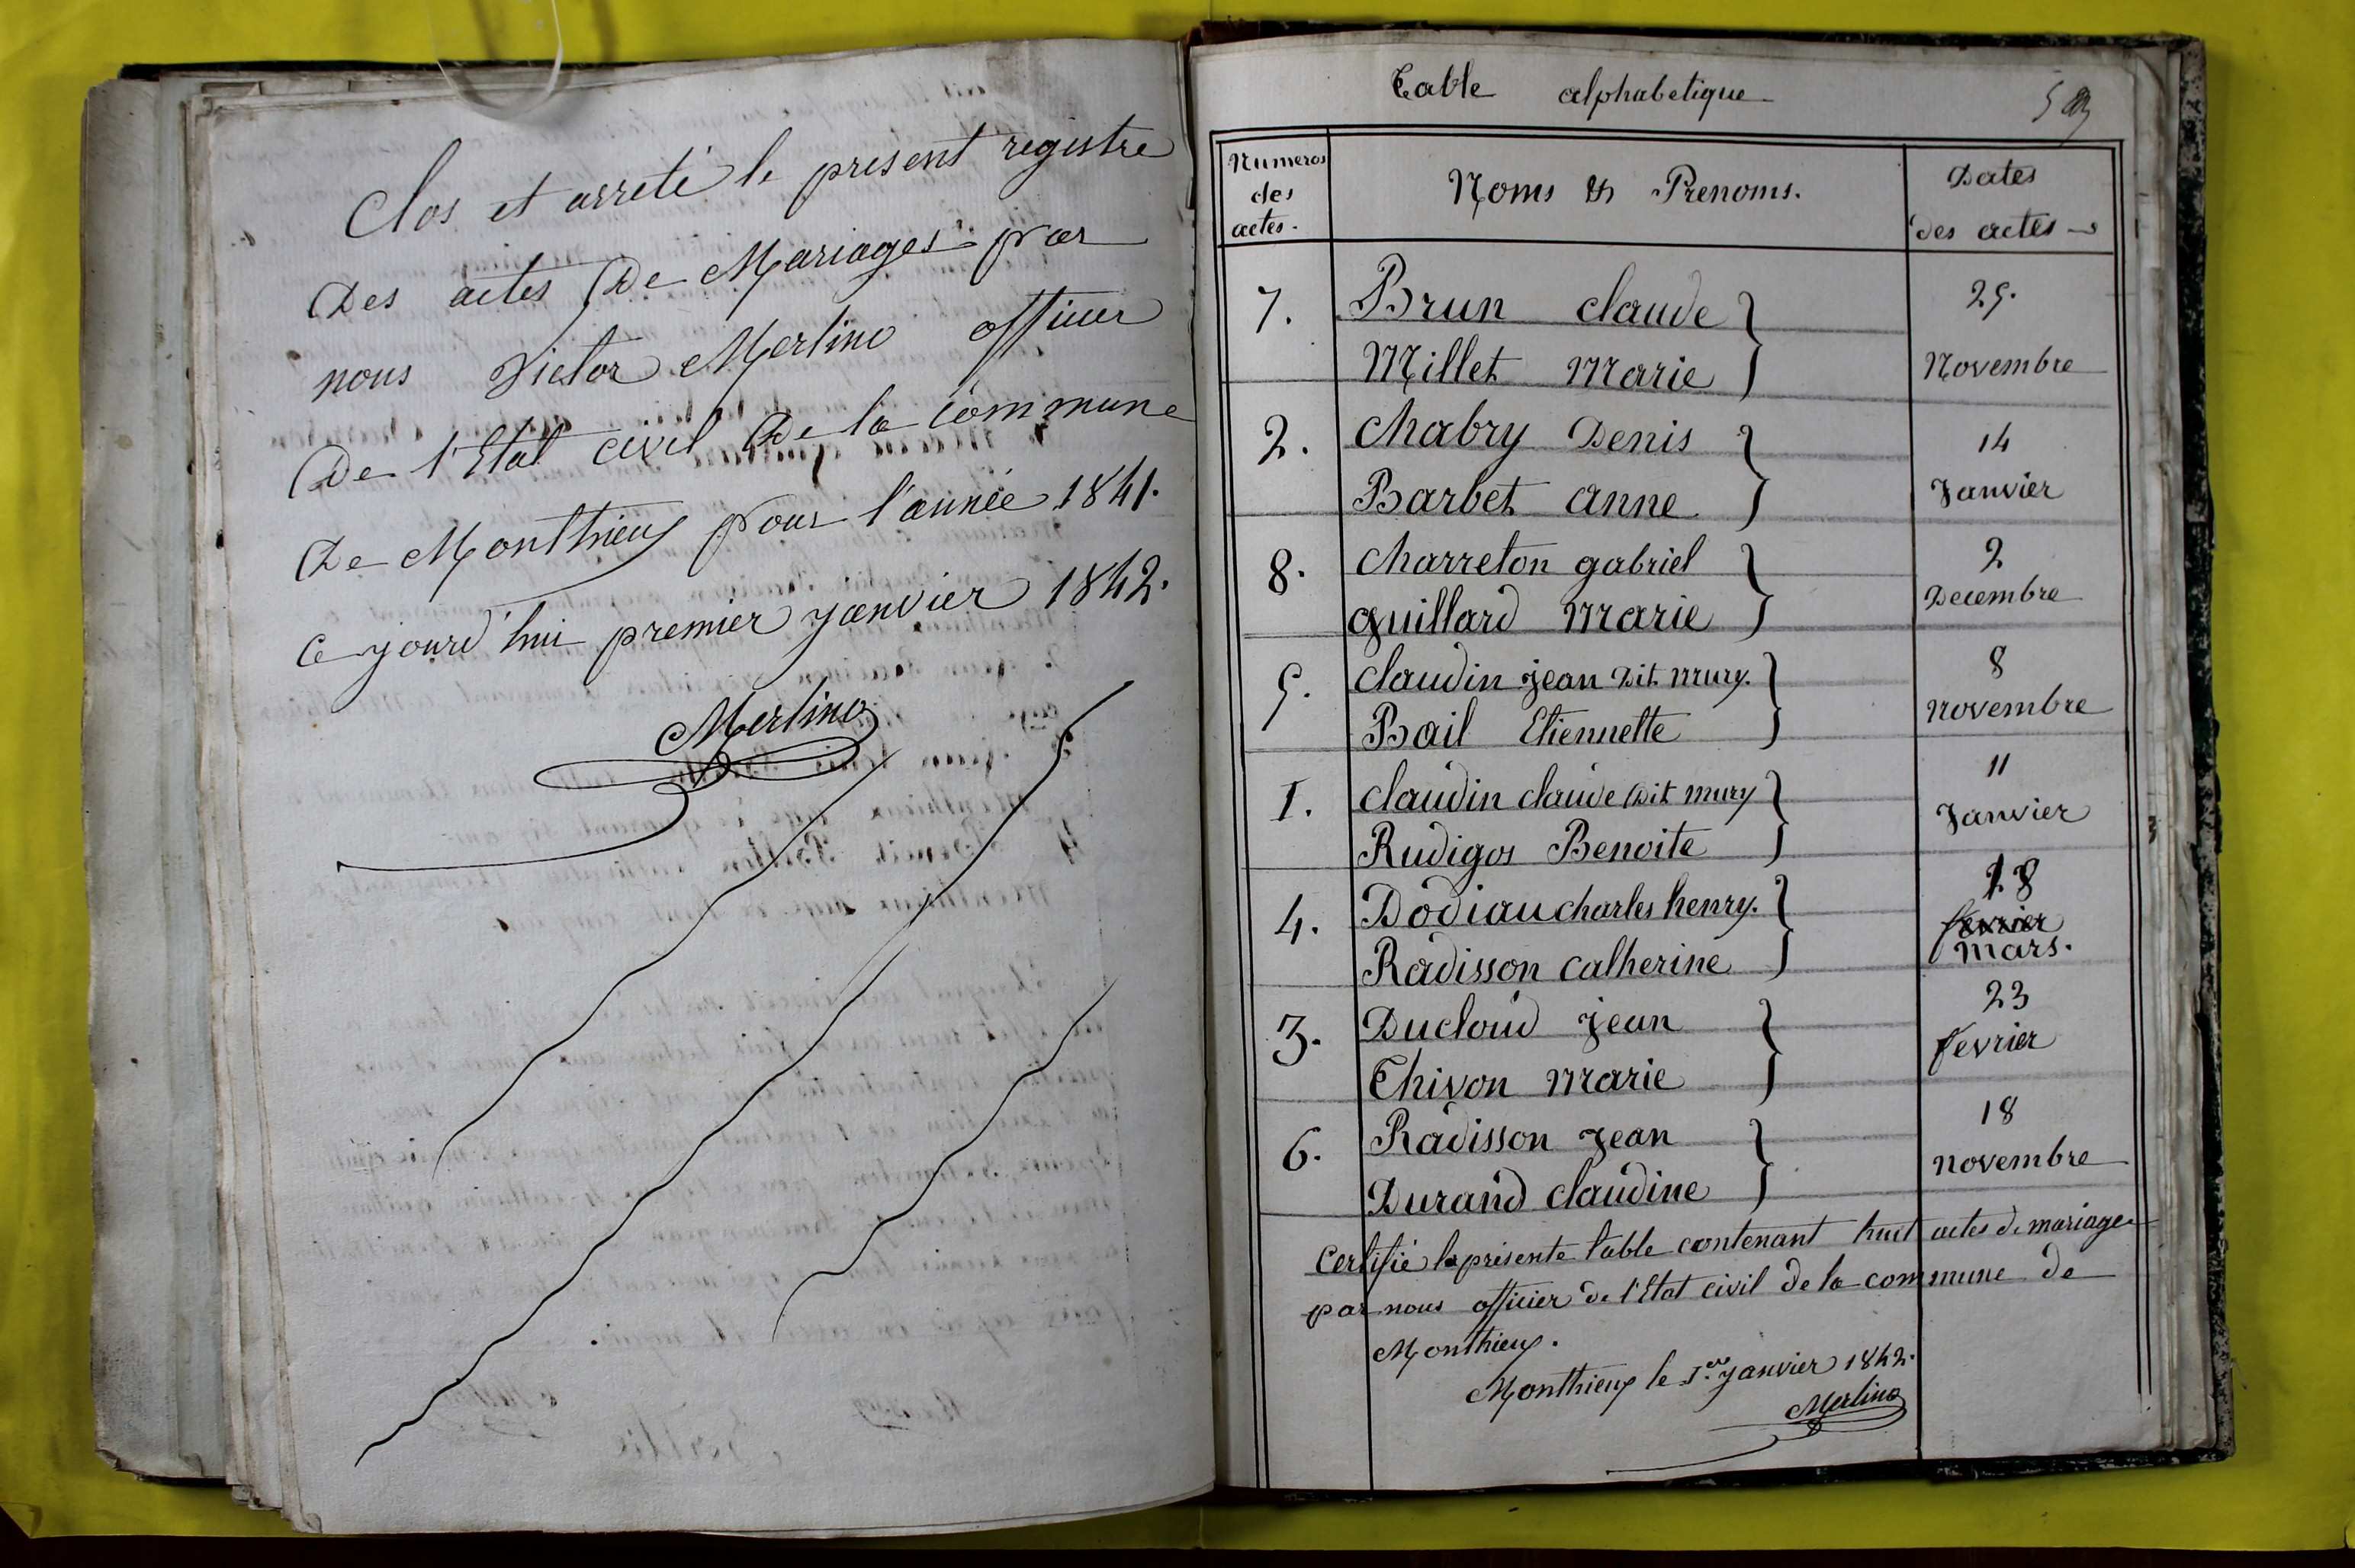 Clos et arreté le present registre
Des actes De Mariages par
nous Victor Merlino officier
De l'Etat civil De la Commune
De Monthieux pour l'année 1841.
Ce jourd'hui premier Janvier 1842.
Merlino
Table alphabetique
Numeros des actes.
Noms & Prenoms.
Dates des actes
7. Brun claude 25.
Millet Marie Novembre
2. Chabry Denis 14
Barbet anne Janvier
8. Charreton gabriel 2
guillard Marie Decembre
5. Claudin Jean Dit mury. 8
Bail Etiennette Novembre
1. Claudin claude Dit mury 11
Rudigos Benoite Janvier
4. Dodiau charles henry. 18
fevrier
Radisson catherine mars.
3. Ducloud Jean 23
Thivon Marie fevrier
6. Radisson Jean 18
Durand claudine novembre
Certifié la présente table contenant huit actes de mariage
par nous officier de l'Etat civil de la commune de
Monthieux.
Monthieux le 1er Janvier 1842.
Merlino